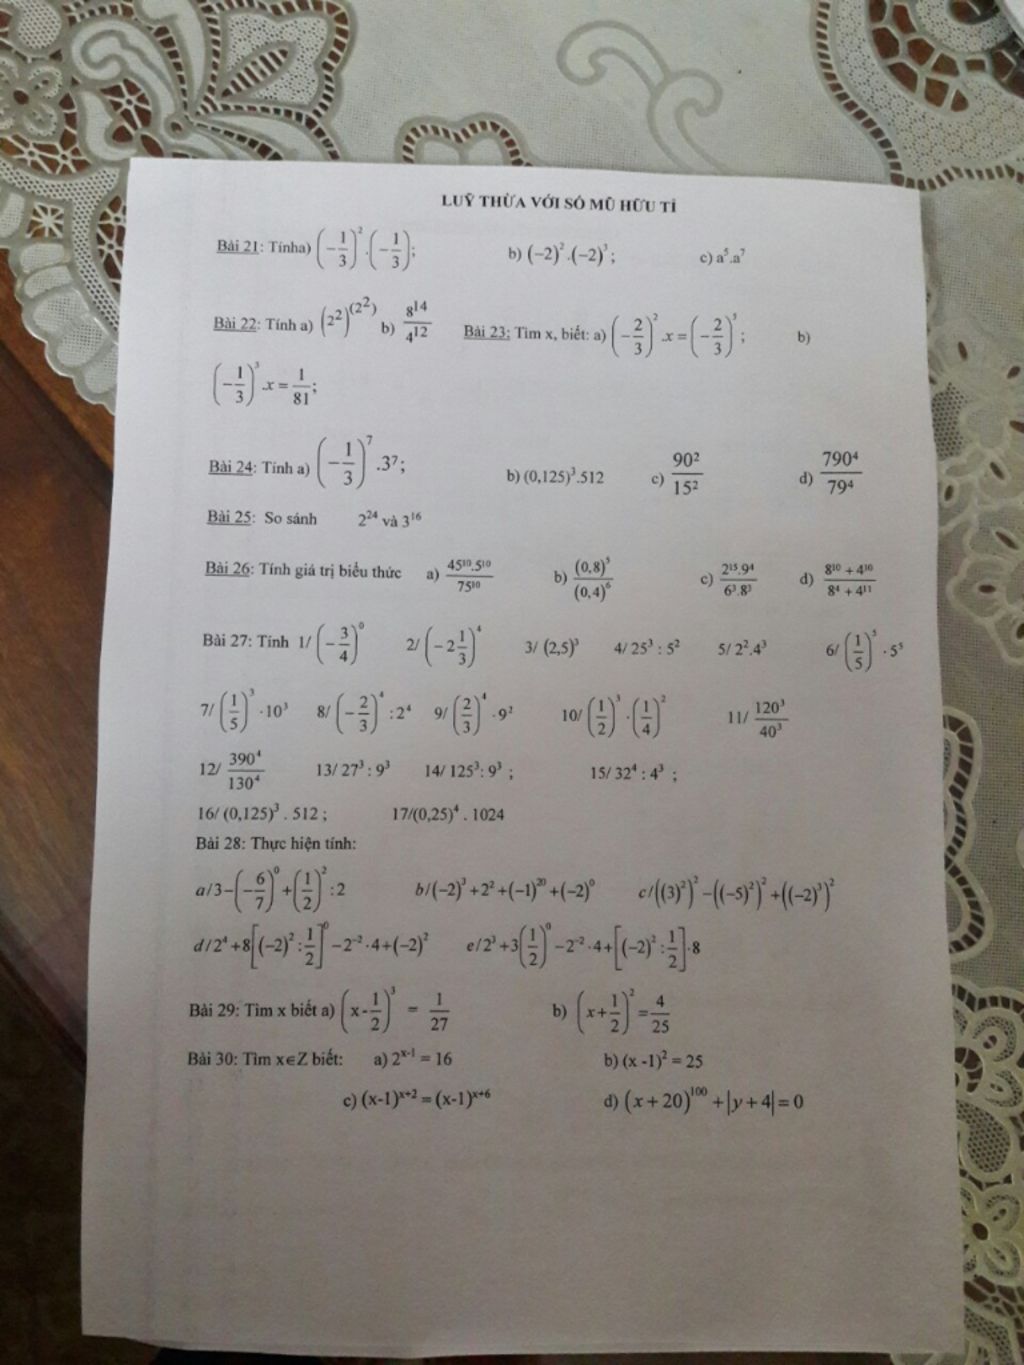 LUỸ THỪA VỚI SỐ MŨ HỮU TỈ
Bài 21: Tínha) (-1/3)^2.(-1/3); b) (-2)^2.(-2)^3; c) a^5.a^7
Bài 22: Tính a) (2^2)^(2^2) b) 8^14/4^12 Bài 23: Tìm x, biết: a) (-2/3)^2.x = (-2/3)^5; b)
(-1/3)^3.x = 1/81;
Bài 24: Tính a) (-1/3)^7.3^7; b) (0,125)^3.512 c) 90^2/15^2 d) 790^4/79^4
Bài 25: So sánh 2^24 và 3^16
Bài 26: Tính giá trị biểu thức a) 45^10.5^10/75^10 b) (0,8)^5/(0,4)^6 c) 2^15.9^4/6^3.8^3 d) 8^10 + 4^10/8^4 + 4^11
Bài 27: Tính 1/ (-3/4)^0 2/ (-2 1/3)^4 3/ (2,5)^3 4/ 25^3 : 5^2 5/ 2^2.4^3 6/ (1/5)^5 · 5^5
7/ (1/5)^3 · 10^3 8/ (-2/3)^4 : 2^4 9/ (2/3)^4 · 9^2 10/ (1/2)^3 · (1/4)^2 11/ 120^3/40^3
12/ 390^4/130^4 13/ 27^3 : 9^3 14/ 125^3: 9^3 ; 15/ 32^4 : 4^3 ;
16/ (0,125)^3 . 512 ; 17/(0,25)^4 . 1024
Bài 28: Thực hiện tính:
a/3-(-6/7)^0+(1/2)^2:2 b/(-2)^3+2^2+(-1)^20+(-2)^0 c/((3)^2)^2-((-5)^2)^2+((-2)^3)^2
d/2^4+8[(-2)^2:1/2]^0-2^-2·4+(-2)^2 e/2^3+3(1/2)^0-2^-2·4+[(-2)^2:1/2]·8
Bài 29: Tìm x biết a) (x-1/2)^3 = 1/27 b) (x+1/2)^2=4/25
Bài 30: Tìm x∈Z biết: a) 2^x-1 = 16 b) (x -1)^2 = 25
c) (x-1)^x+2 = (x-1)^x+6 d) (x+20)^100+|y+4|=0